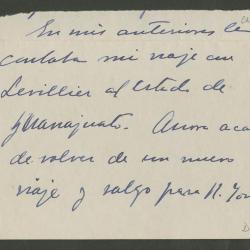 En mis anteriores le
contaba mi viaje con
Levillier al Estado de
Guanajuato. Ahora aca
de volver de un nuevo
viaje y salgo para N. Yor